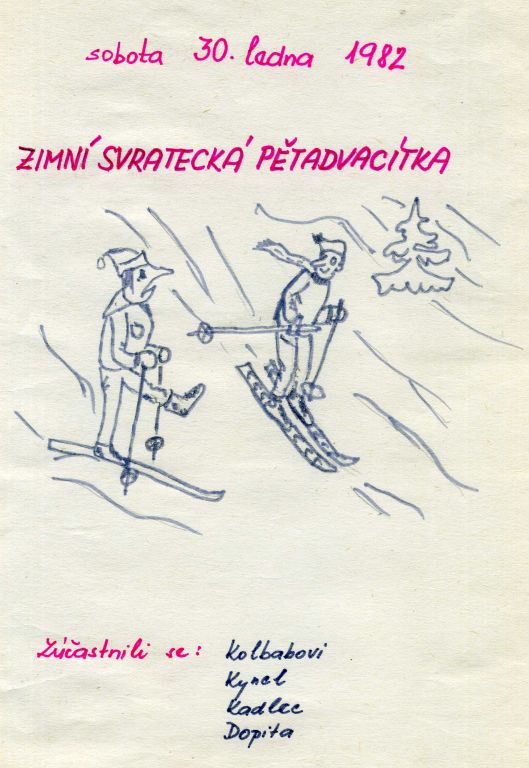 sobota 30. ledna 1982
ZIMNÍ SVRATECKÁ PĚTADVACÍTKA
Zúčastnili se: Kolbabovi
Kyncl
Kadlec
Dopita